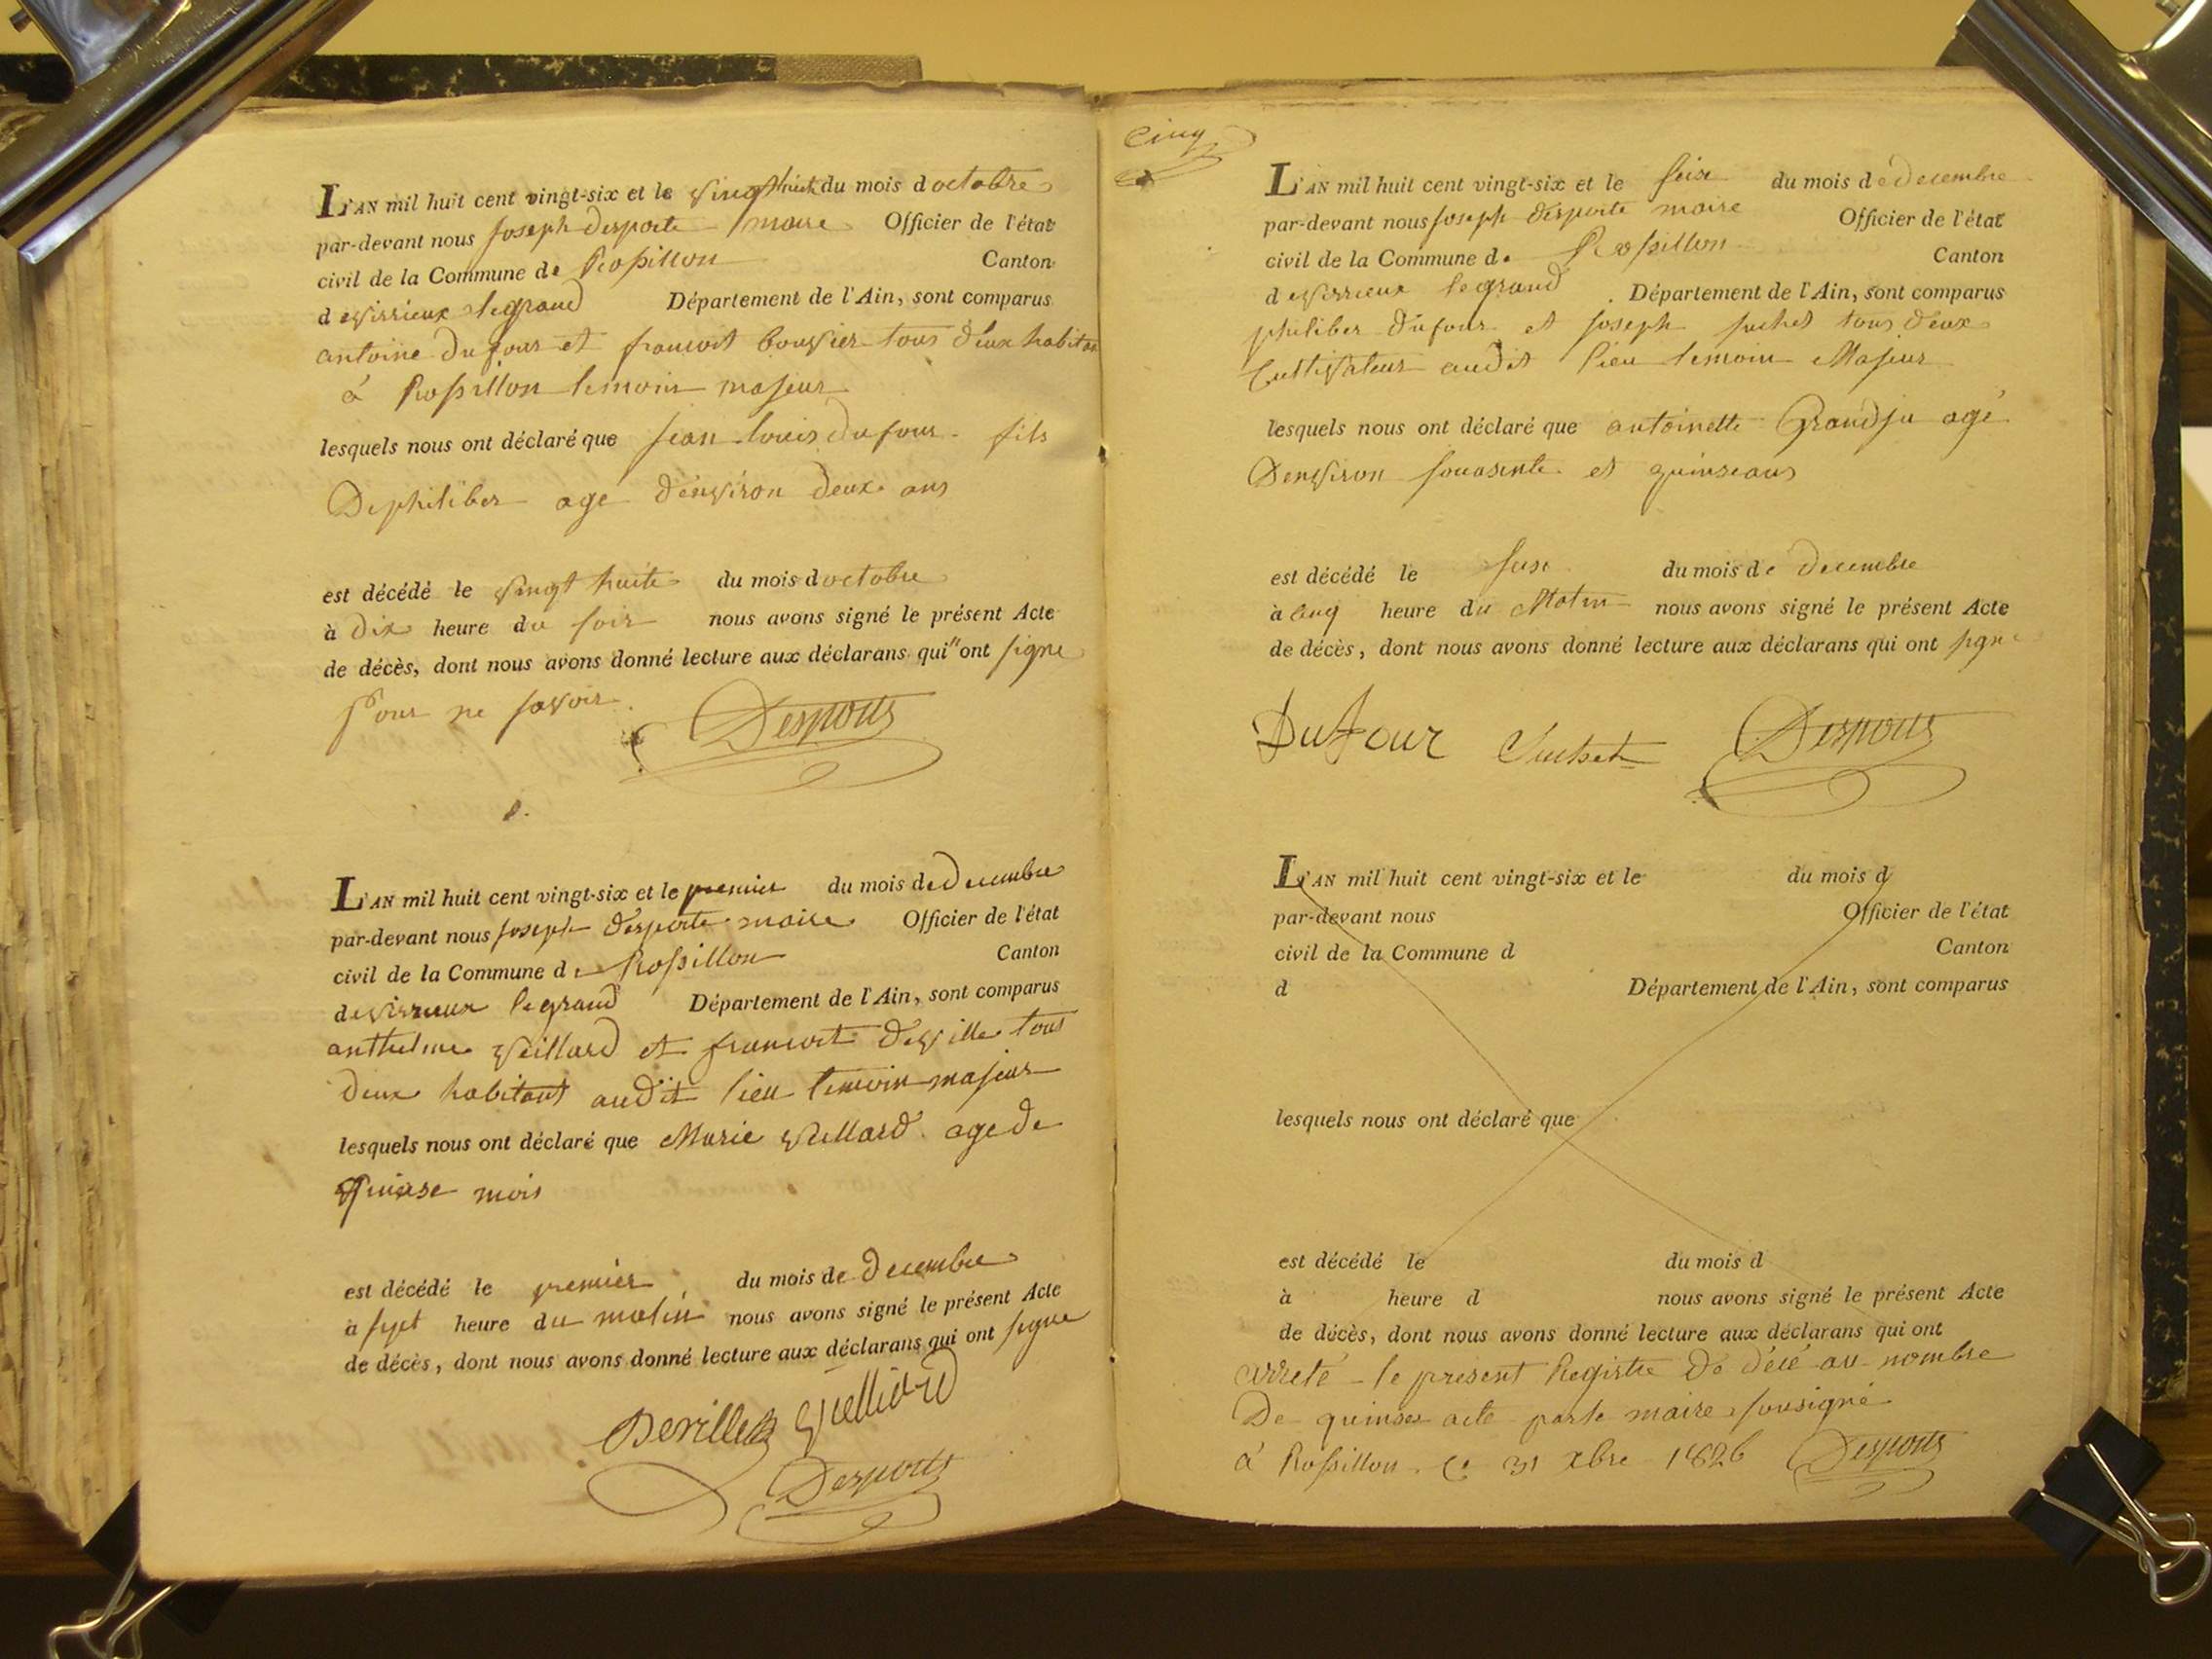 L'AN mil huit cent vingt-six et le vingt huit du mois d octobre
par-devant nous joseph desporte maire Officier de l'état
civil de la Commune de Rossillon Canton
d evirrieux legrand Département de l'Ain, sont comparus
antoine dufour et francoit bouvier tous deux habitan
à Rossillon temoin majeur
lesquels nous ont déclaré que jean louis dufour fils
De philiber age d'environ deux ans
est décédé le vingt huite du mois d octobre
à dix heure du soir nous avons signé le présent Acte
de décès, dont nous avons donné lecture aux déclarans qui n ont signe
pour ne savoir.
Desports
L'AN mil huit cent vingt-six et le premier du mois de decembre
par-devant nous joseph desporte maire Officier de l'état
civil de la Commune de Rossillon Canton
de virrieux legrand Département de l'Ain, sont comparus
anthelme veillard et francoit deville tous
deux habitant audit lieu temoin majeur
lesquels nous ont déclaré que Marie veillard age de
quinse mois
est décédé le premier du mois de decembre
à sept heure du matin nous avons signé le présent Acte
de décès, dont nous avons donné lecture aux déclarans qui ont signe
Deville vuelliard
Desports
Cinq
L'AN mil huit cent vingt-six et le seix du mois de decembre
par-devant nous joseph desporte maire Officier de l'état
civil de la Commune de Rossillon Canton
d evirrieux legrand Département de l'Ain, sont comparus
philiber dufour et joseph suchet tous deux
Cultivateur audit lieu temoin Majeur
lesquels nous ont déclaré que antoinette Grandju agé
D'environ souasente et quinseans
est décédé le seix du mois de decembre
à cinq heure du Matin nous avons signé le présent Acte
de décès, dont nous avons donné lecture aux déclarans qui ont signé
Dufour Suchet Desports
L'AN mil huit cent vingt-six et le du mois d
par-devant nous Officier de l'état
civil de la Commune d Canton
d Département de l'Ain, sont comparus
lesquels nous ont déclaré que
est décédé le du mois d
à heure d nous avons signé le présent Acte
de décès, dont nous avons donné lecture aux déclarans qui ont
arreté le présent Registre de décé au nombre
De quinse acte par le maire sousigné
à Rossillon ce 31 xbre 1826 Desports